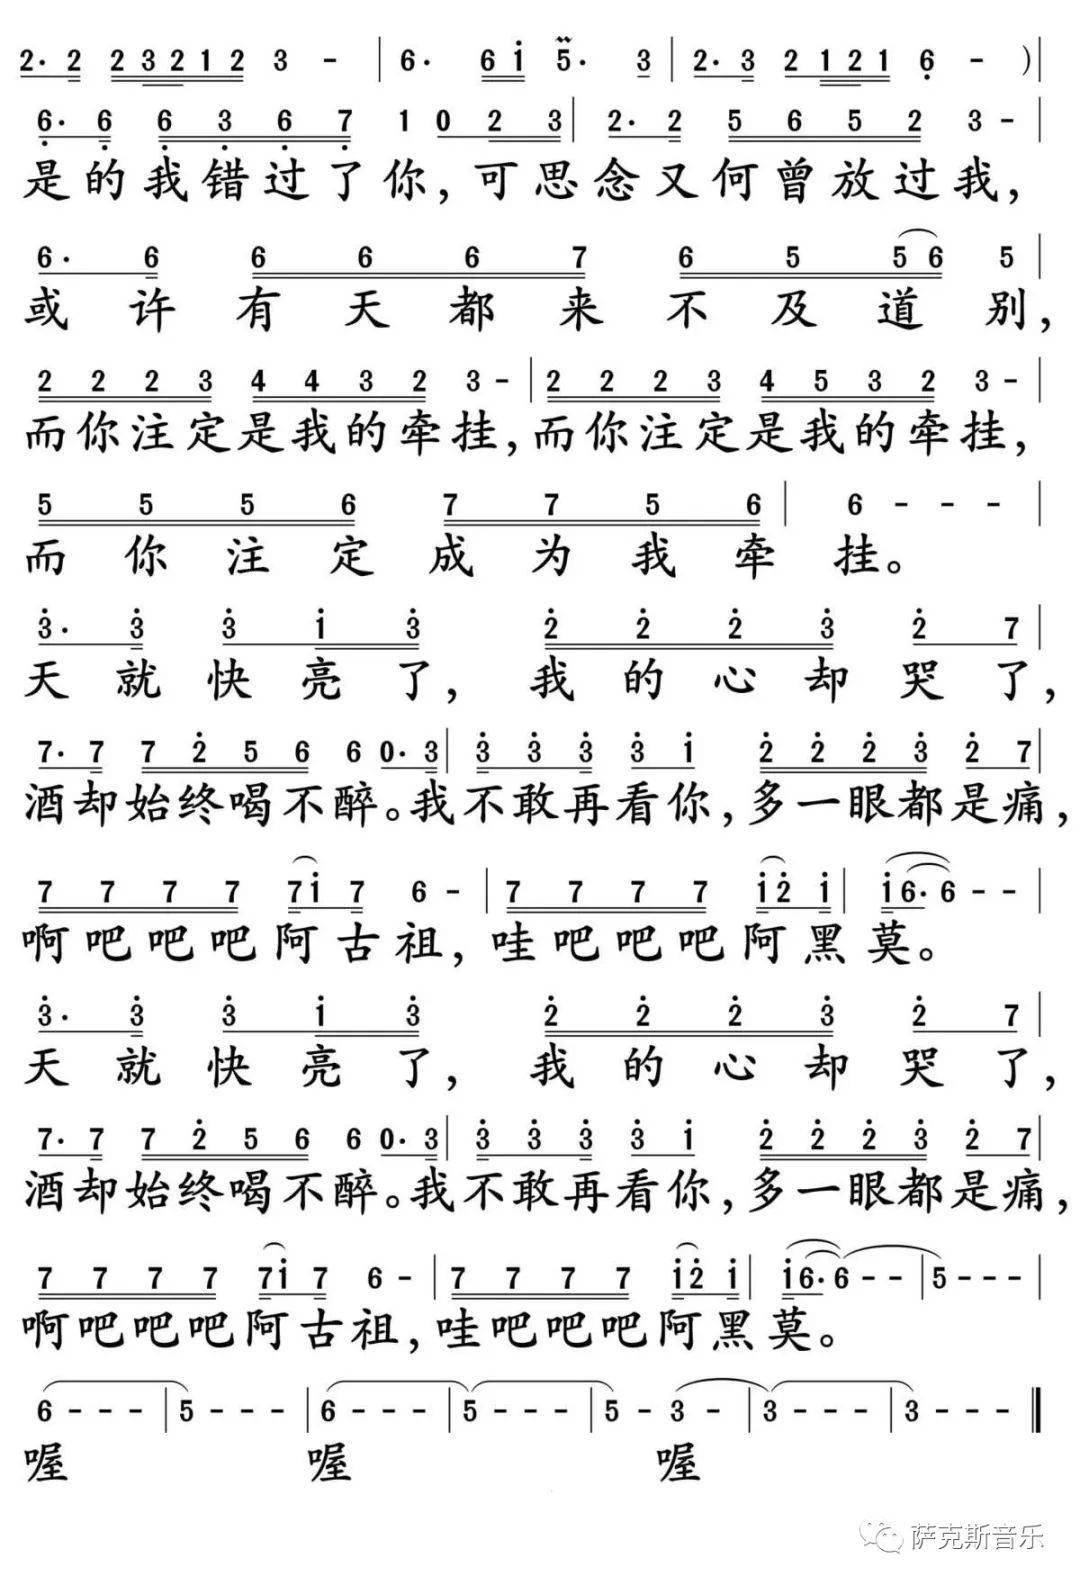 2· 2 2 3 2 1 2 3 - | 6· 6 1 5· 3 | 2· 3 2 1 2 1 6 - )|
6· 6 6 3 6 7 1 0 2 3 | 2· 2 5 6 5 2 3 - |
是的我错过了你,可思念又何曾放过我,
6· 6 6 6 6 7 6 5 5 6 5 |
或许有天都来不及道别,
2 2 2 3 4 4 3 2 3 - | 2 2 2 3 4 5 3 2 3 - |
而你注定是我的牵挂,而你注定是我的牵挂,
5 5 5 6 7 7 5 6 | 6 - - - |
而你注定成为我牵挂。
3· 3 3 1 3 2 2 2 3 2 7 |
天就快亮了,我的心却哭了,
7· 7 7 2 5 6 6 0· 3 | 3 3 3 3 1 2 2 2 3 2 7 |
酒却始终喝不醉。我不敢再看你,多一眼都是痛,
7 7 7 7 7 1 7 6 - | 7 7 7 7 1 2 1 | 1 6· 6 - - |
啊吧吧吧阿古祖,哇吧吧吧阿黑莫。
3· 3 3 1 3 2 2 2 3 2 7 |
天就快亮了,我的心却哭了,
7· 7 7 2 5 6 6 0· 3 | 3 3 3 3 1 2 2 2 3 2 7 |
酒却始终喝不醉。我不敢再看你,多一眼都是痛,
7 7 7 7 7 1 7 6 - | 7 7 7 7 1 2 1 | 1 6· 6 - - | 5 - - - |
啊吧吧吧阿古祖,哇吧吧吧阿黑莫。
6 - - - | 5 - - - | 6 - - - | 5 - - - | 5 - 3 - | 3 - - - | 3 - - - ‖
喔 喔 喔
萨克斯音乐